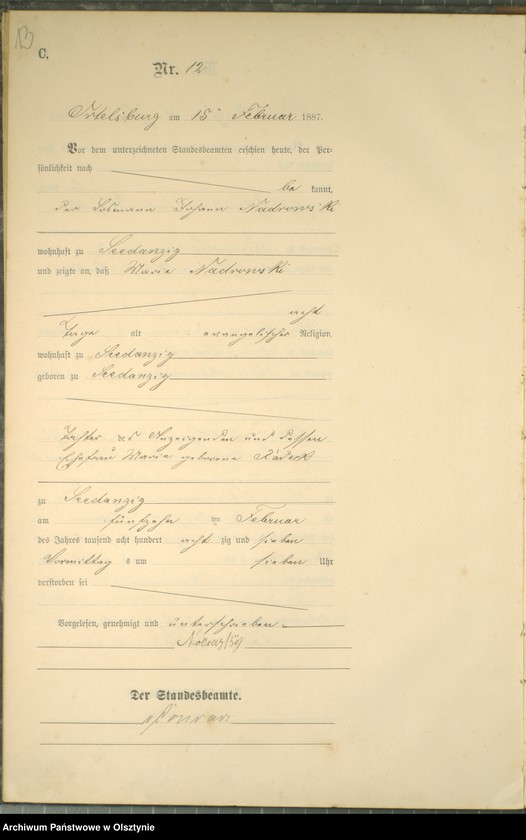 13
C.
Nr. 12
Ortelsburg am 15 Februar 1887.
Vor dem unterzeichneten Standesbeamten erschien heute, der Per-
sönlichkeit nach
be kannt,
der Losmann Johann Nadrowski
wohnhaft zu Seedanzig
und zeigte an, daß Marie Nadrowski
acht
Tage alt evangelischer Religion,
wohnhaft zu Seedanzig
geboren zu Seedanzig
Tochter des Anzeigenden und dessen
Ehefrau Marie geborene
zu Seedanzig
am fünfzehn ten Februar
des Jahres tausend acht hundert acht zig und sieben
Vormittag s um sieben Uhr
verstorben sei
Vorgelesen, genehmigt und unterschrieben
Der Standesbeamte.
Archiwum Państwowe w Olsztynie